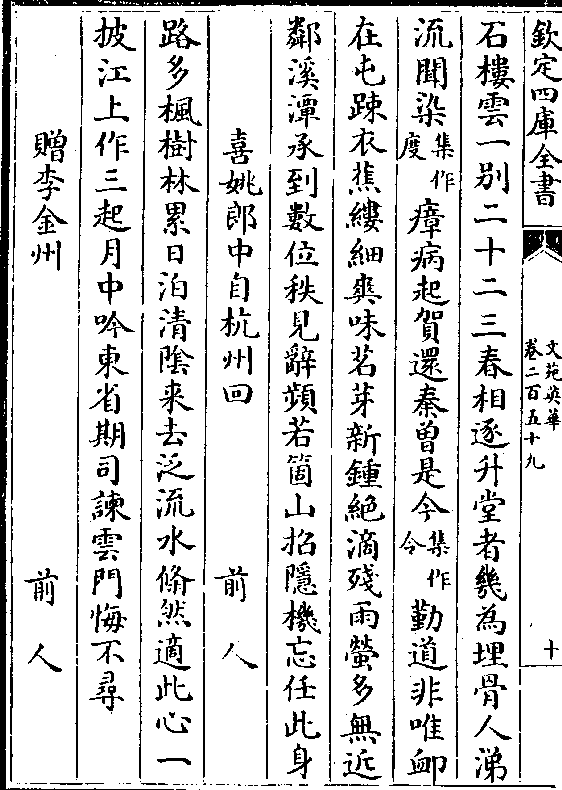 欽定四庫全書
文苑英華
卷二百五十九
十
石樓雲一別二十二三春相逐升堂者幾為埋骨人涕
流聞染集作度瘴病起賀還秦曽是今集作令勤道非唯卹
在屯踈衣蕉縷細爽味茗芽新鍾絶滴殘雨螢多無近
鄰溪潭承到數位秩見辭頻若箇山招隱機忘任此身
喜姚郎中自杭州回　前人
路多楓樹林累日泊清陰来去泛流水翛然適此心一
披江上作三起月中吟東省期司諫雲門悔不尋
贈李金州　前人